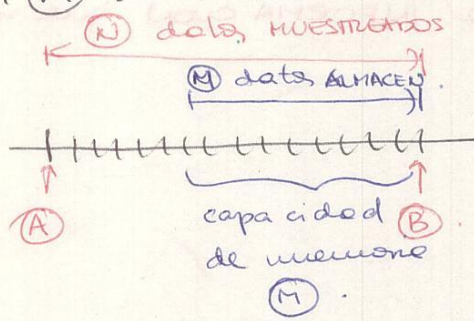 (N) datos MUESTREADOS
(M) datos ALMACEN.
(A)
capacidad (B)
de memoria
(M).